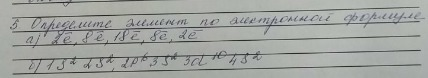 3 Определите элемент по электронной формуле
а) 2ē, 8ē, 18ē, 8ē, 2ē
б) 1S² 2S² 2p⁶ 3S² 3d¹⁰ 4S²